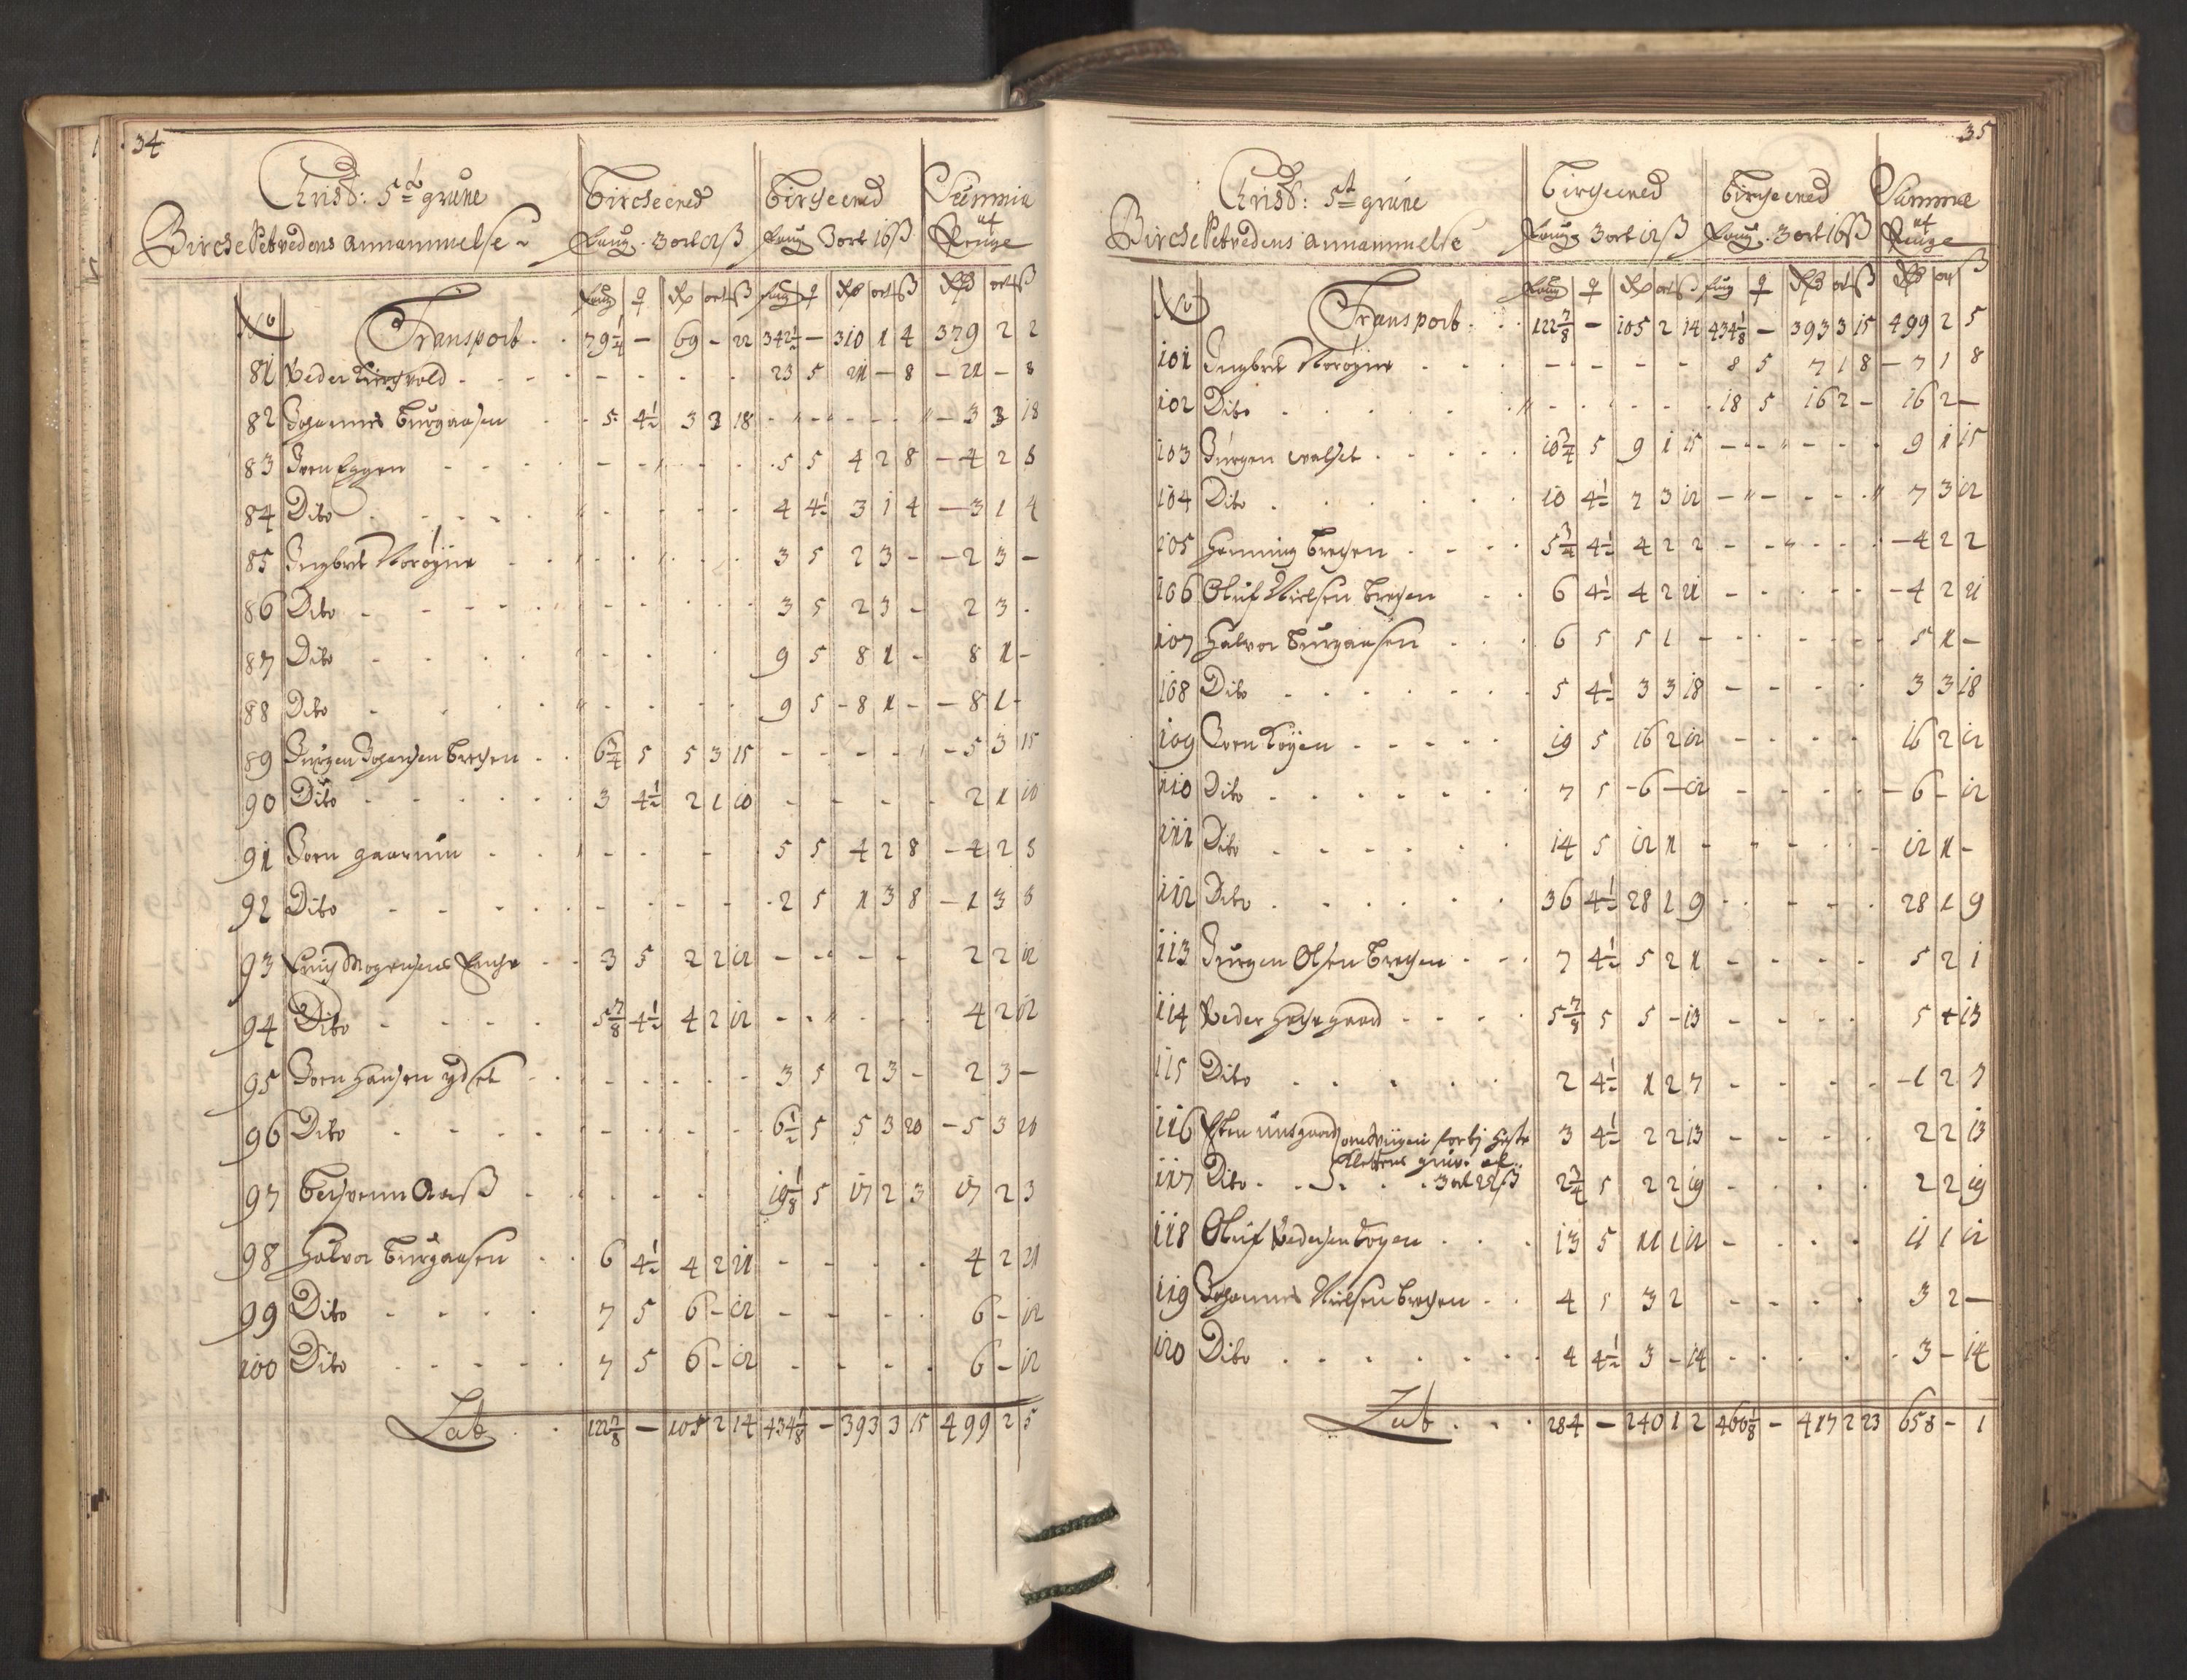 34
Christ: 5te grúne
Birche Vebredens annammelse
Bircheened Faug. 3 ort 12 ß
Bircheened Faug 3 ort 16 ß
Summa ut Penge
No Faug q Rd ort ß Faug q Rd ort ß Rd ort ß
Transport . . 79 1/4 — 69 - 22 342 1/2 — 310 1 4 379 2 2
81 Peder - - - - 23 5 21 — 8 — 21 — 8
82 Johannes Burgaasen - - 5 4 1/2 3 3 18 - - - - — 3 3 18
83 Joen Eggen - - - - 5 5 4 2 8 — 4 2 8
84 Dito - - - - 4 4 1/2 3 1 4 — 3 1 4
85 Ingbret Norøyne - - - - 3 5 2 3 - — 2 3 —
86 Dito - - - - 3 5 2 3 - 2 3 -
87 Dito - - - - 9 5 8 1 - 8 1 -
88 Dito - - - - 9 5 - 8 1 - — 8 1 -
89 Jürgen Johansen Brechen . . 6 3/4 5 5 3 15 - - - - — 5 3 15
90 Dito - - - - 3 4 1/2 2 1 10 - - - - 2 1 10
91 Joen Gaarum - - - - 5 5 4 2 8 — 4 2 8
92 Dito - - - - 2 5 1 3 8 — 1 3 8
93 Mogensens Enche - - 3 5 2 2 12 - - - - 2 2 12
94 Dito - - - - 5 7/8 4 1/2 4 2 12 - - - - 4 2 12
95 Joen Hansen ydset - - - - 3 5 2 3 - 2 3 —
96 Dito - - - - 6 1/2 5 5 3 20 — 5 3 20
97 Aaß - - - - 19 1/8 5 17 2 3 17 2 3
98 Halvor Burgaasen - - 6 4 1/2 4 2 21 - - - - 4 2 21
99 Dito - - - - 7 5 6 - 12 - - - - 6 - 12
100 Dito - - - - 7 5 6 - 12 - - - - 6 - 12
Lat . . 122 7/8 — 105 2 14 434 1/8 — 393 3 15 499 2 5
35
Christ: 5te grúne
Birche Vebredens annammelse
Bircheened Faug 3 ort 12 ß
Bircheened Faug. 3 ort 16 ß
Summa ut Penge
No Faug q Rd ort ß Faug q Rd ort ß Rd ort ß
Transport . . 122 7/8 — 105 2 14 434 1/8 — 393 3 15 499 2 5
101 Ingbret Norøyne - - - - 8 5 7 1 8 — 7 1 8
102 Dito - - - - 18 5 16 2 - 16 2 —
103 Jürgen walset . . . . 10 3/4 5 9 1 15 - - - - 9 1 15
104 Dito . . . . 10 4 1/2 7 3 12 - - - - 7 3 12
105 Henning Brechen . . . . 5 3/4 4 1/2 4 2 2 - - - - — 4 2 2
106 Oluf Nielsen Brechen . . 6 4 1/2 4 2 21 - - - - — 4 2 21
107 Halvor Burgaasen . . . 6 5 5 1 - - - - - 5 1 —
108 Dito - - - - 5 4 1/2 3 3 18 - - - - 3 3 18
109 Joen Løyen - - - - 19 5 16 2 12 - - - - 16 2 12
110 Dito - - - - 7 5 - 6 — 12 - - - - — 6 - 12
111 Dito - - - - 14 5 12 1 - - - - - 12 1 —
112 Dito . . . . 36 4 1/2 28 1 9 - - - - 28 1 9
113 Jürgen Olsen Brechen - - 7 4 1/2 5 2 1 - - - - 5 2 1
114 Peder - - - - 5 7/8 5 5 - 13 - - - - 5 + 13
115 Dito . . . . 2 4 1/2 1 2 7 - - - - — 1 2 7
116 Esten unsgaard 3 4 1/2 2 2 13 - - - - 2 2 13
117 Dito . . . . 3 ort 22 ß 2 3/4 5 2 2 19 - - - - 2 2 19
118 Oluf Pedersen Løyen . . . 13 5 11 1 12 - - - - 11 1 12
119 Johannes Nielsen Brechen . . 4 5 3 2 - - - - 3 2 —
120 Dito . . . . 4 4 1/2 3 - 14 - - - - 3 - 14
Lat . . . 284 — 240 1 2 460 1/8 — 417 2 23 658 - 1